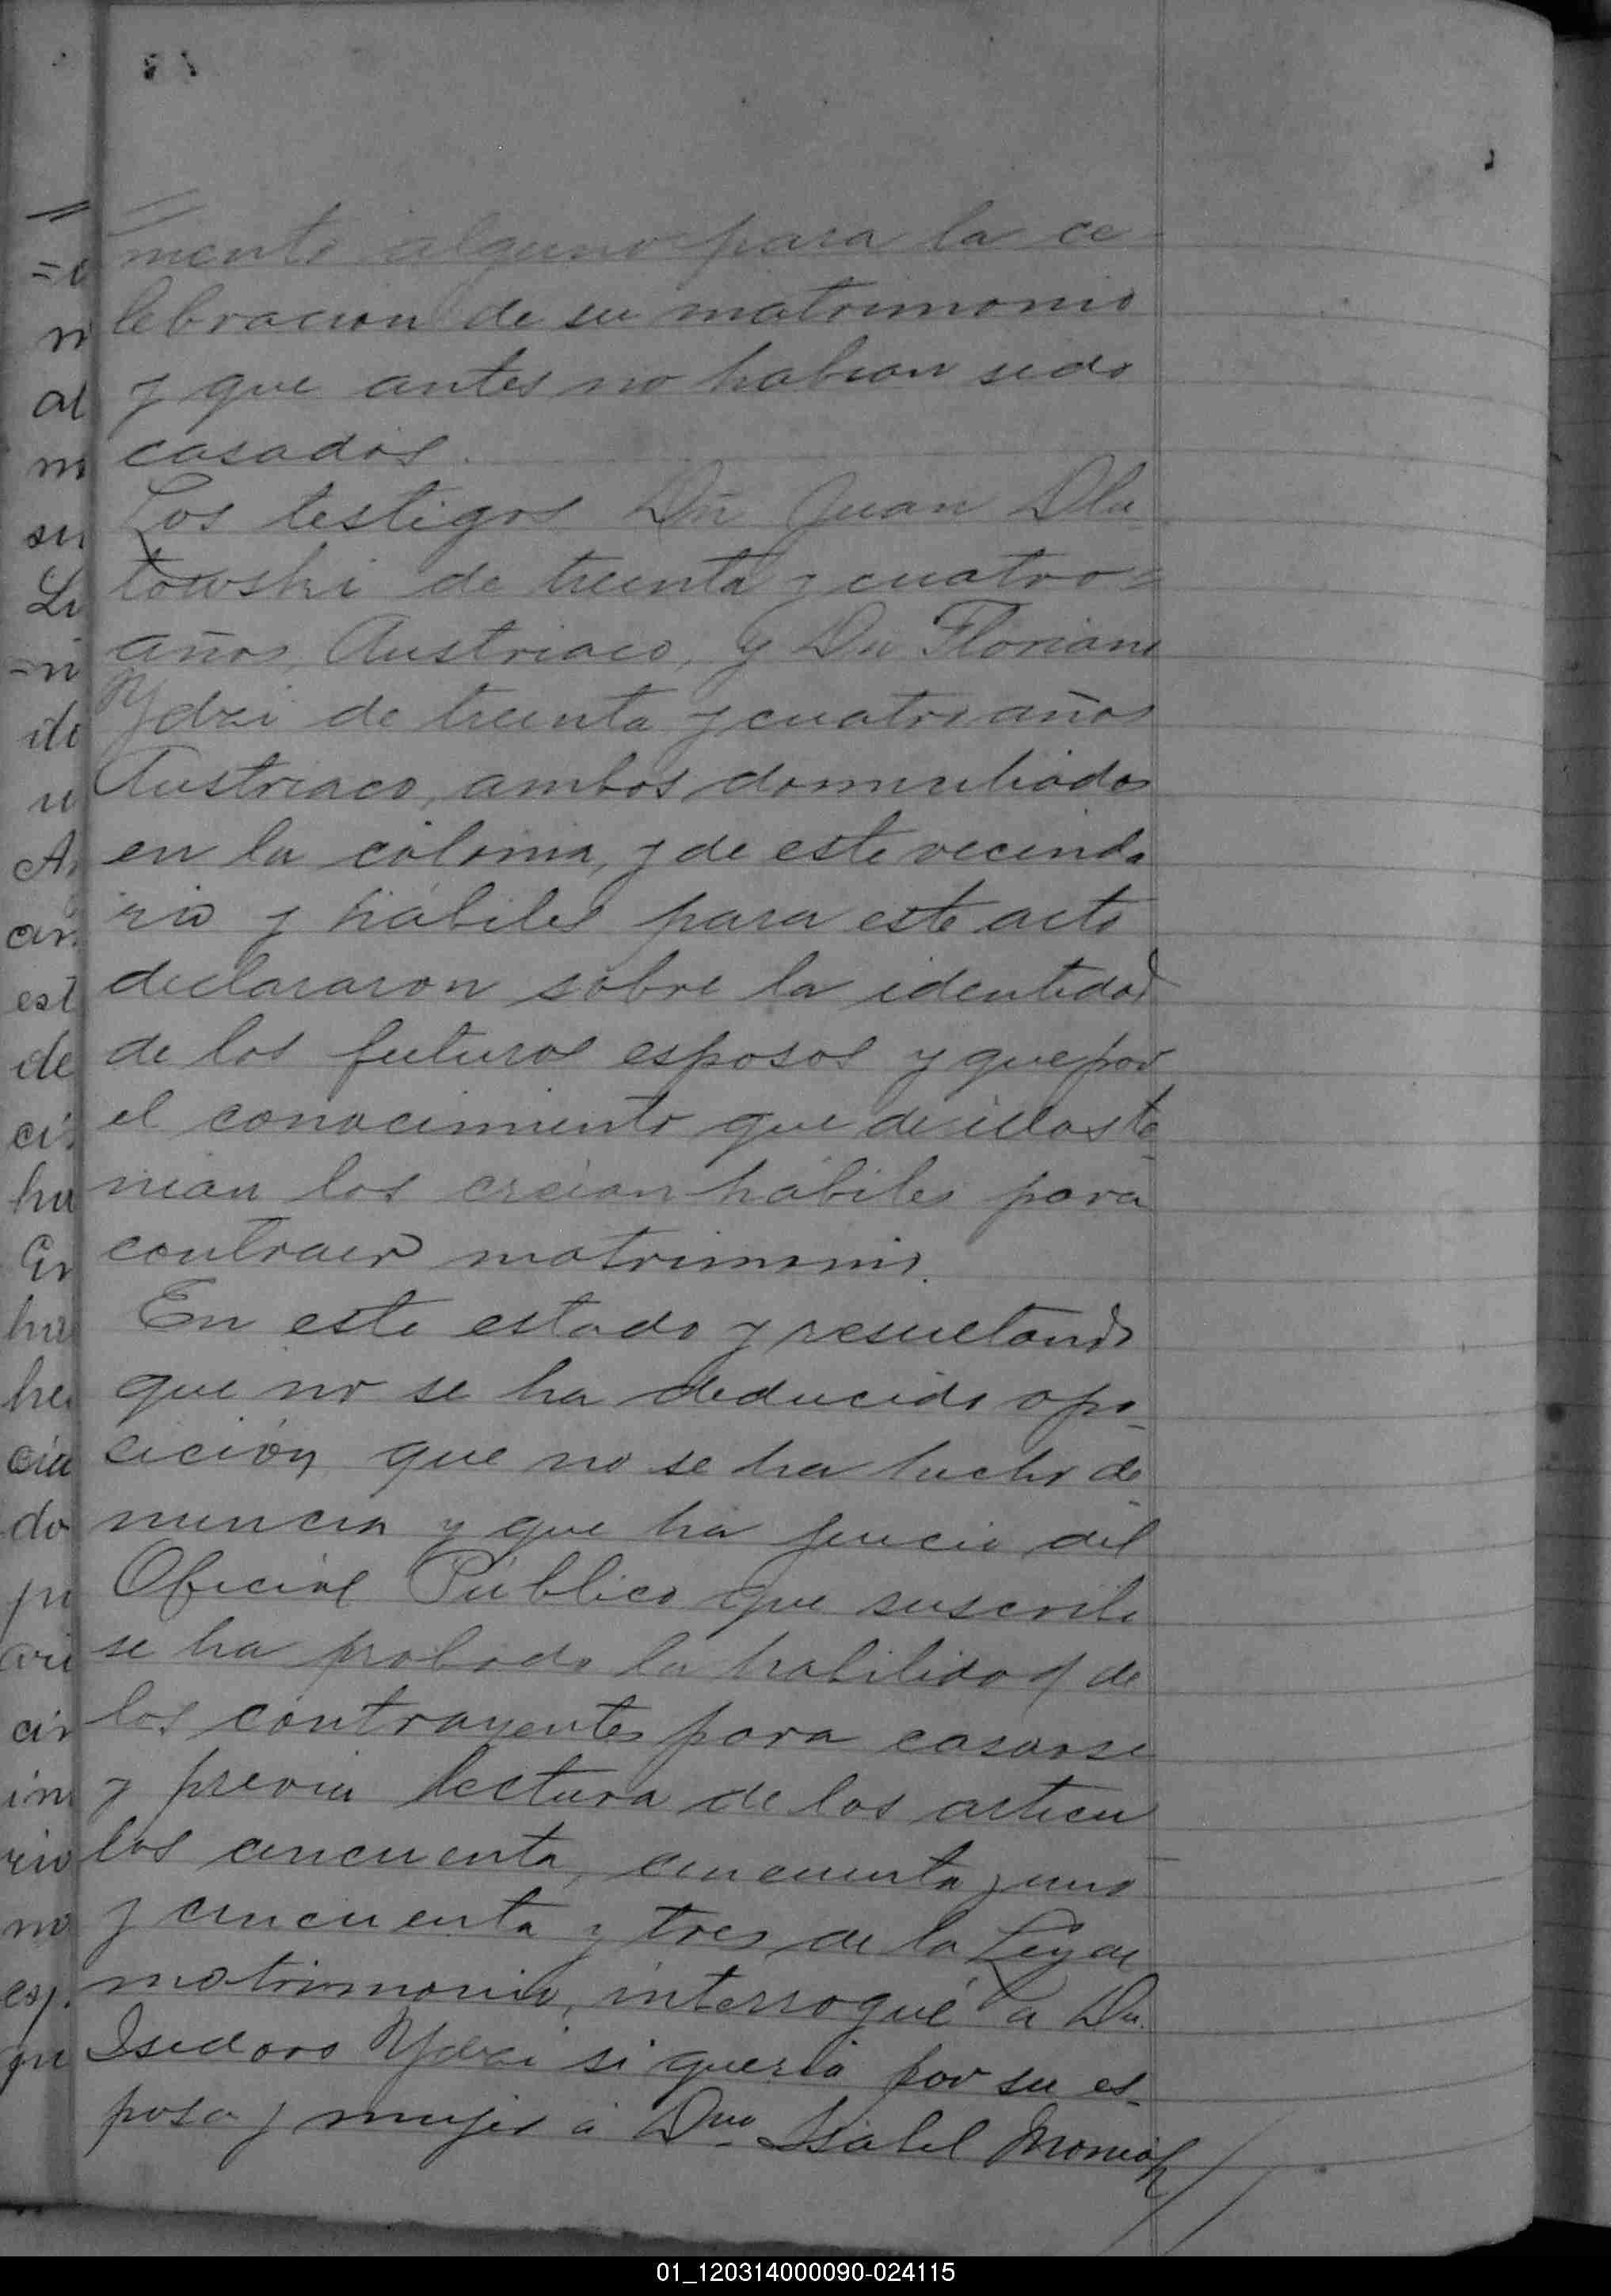 mento alguno para la ce-
lebracion de su matrimonio
y que antes no habian sido
casados.
Los testigos Dn Juan Dlu-
towski de treinta y cuatro
años, Austriaco, y Dn Floriano
Ydzi de treinta y cuatro años
Austriaco, ambos domiciliados
en la colonia, y de este vecinda
rio y hábiles para este acto
declararon sobre la identidad
de los futuros esposos y que por
el conocimiento que de ellos te-
nian los creian hábiles para
contraer matrimonio.
En este estado y resultando
que no se ha deducido opo-
sición que no se ha hecho de-
nuncia y que ha juicio del
Oficial Público que suscribe
se ha probado la habilidad de
los contrayentes para casarse
y previa lectura de los articu
los cincuenta, cincuenta y uno
y cincuenta y tres de la Ley de
matrimonio, interrogué a Dn.
Isidoro Ydzi si queria por su es-
posa y mujer á Dña Isabel Moniak
01_120314000090-024115